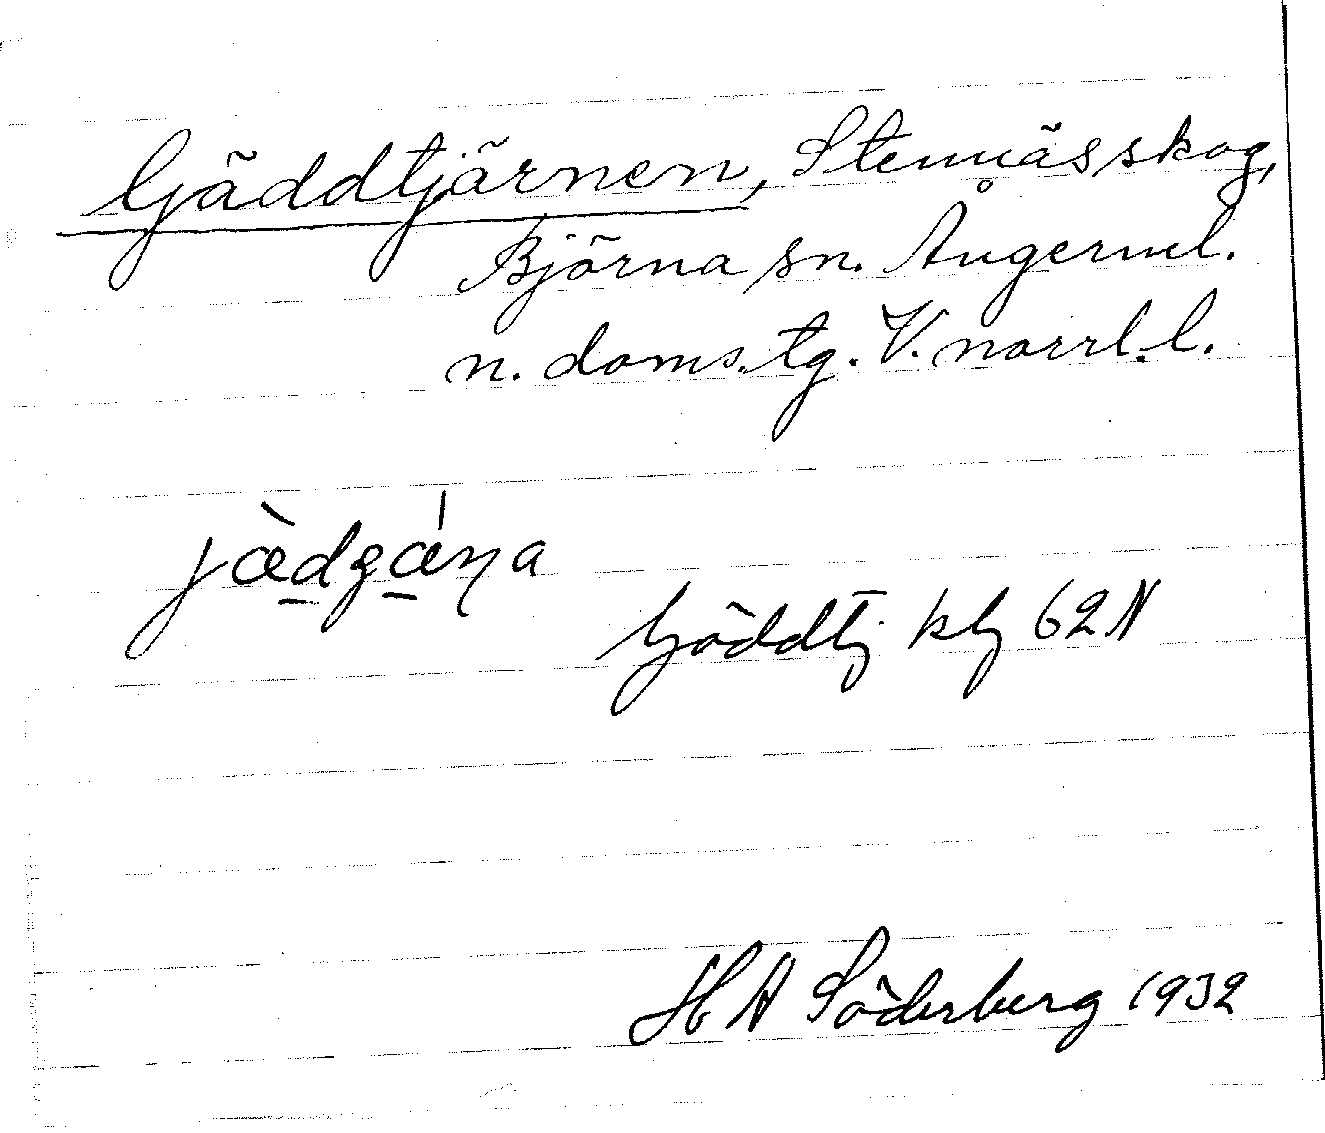 Gäddtjärnen, Stennässkog,
Björna sn. Ångerml.
n. doms. tg. V. norrl. l.
jæ̀dʒǽŋa
Gäddtj kbl 62 N
H A Söderberg 1932